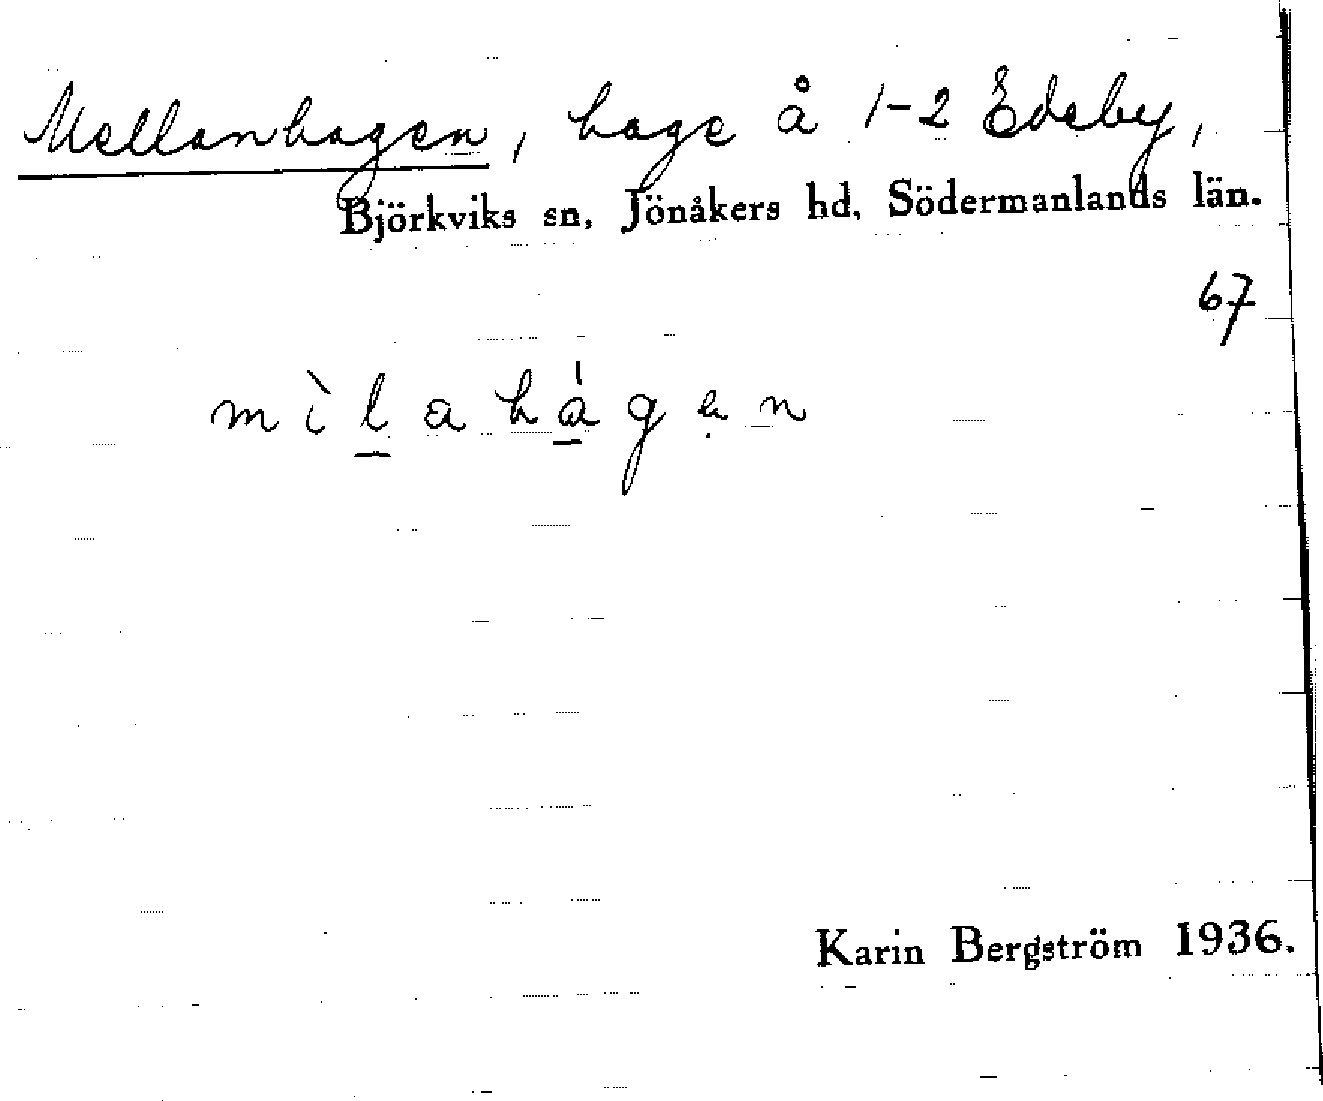 Mellanhagen, hage å 1-2 Edeby,
Björkviks sn, Jönåkers hd, Södermanlands län.
67
mìlahágen
Karin Bergström 1936.